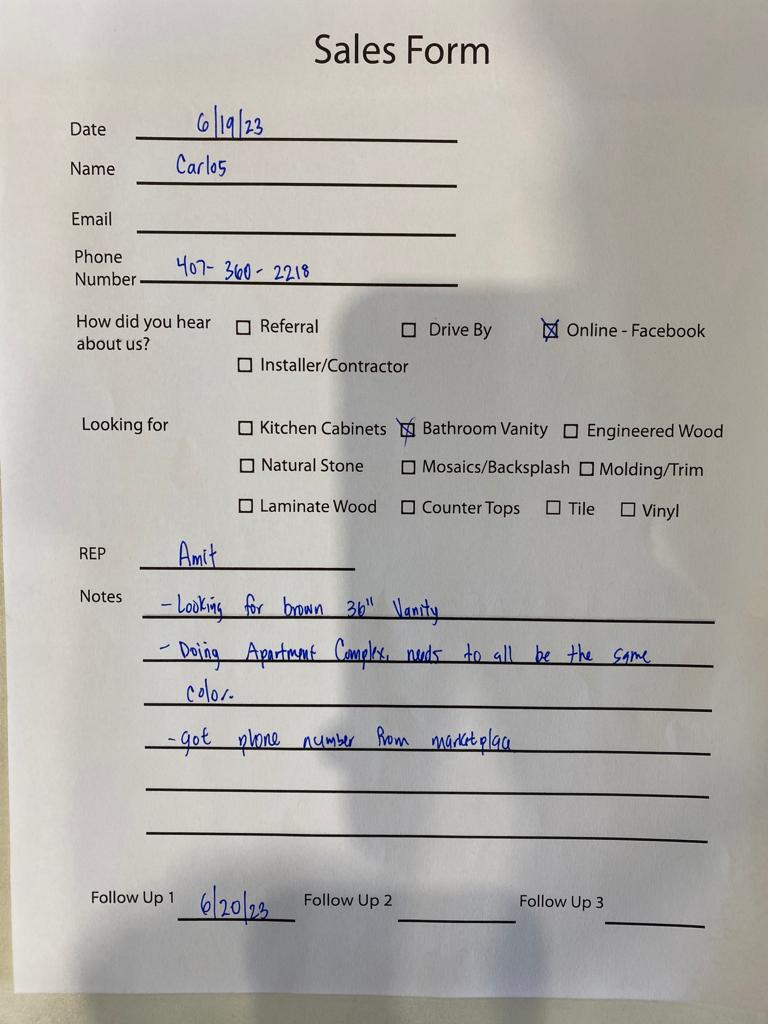 Sales Form
Date 6/19/23
Name Carlos
Email
Phone
Number 407- 360 - 2218
How did you hear
about us?
☐ Referral ☐ Drive By ☒ Online - Facebook
☐ Installer/Contractor
Looking for ☐ Kitchen Cabinets ☒ Bathroom Vanity ☐ Engineered Wood
☐ Natural Stone ☐ Mosaics/Backsplash ☐ Molding/Trim
☐ Laminate Wood ☐ Counter Tops ☐ Tile ☐ Vinyl
REP Amit
Notes - Looking for brown 36" Vanity
- Doing Apartment Complex, needs to all be the same
color.
- got phone number from marketplace
Follow Up 1 6/20/23 Follow Up 2 Follow Up 3